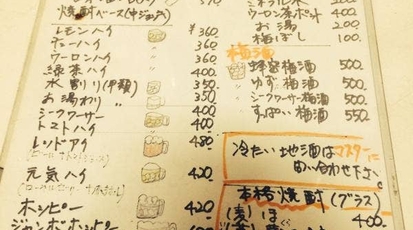 焼酎ベース(中ジョッキ)
レモンハイ ¥360.
チューハイ 360.
ウーロンハイ 360.
緑茶ハイ 400
水割り(甲類) 350
お湯わり 350
シークワーサー 400.
トマトハイ 400.
レッドアイ 480
元気ハイ 420
ホッピー 420
ジャンボホッピー
ミネラル水
ウーロン茶ポット
お湯 200
梅ぼし 100.
梅酒
蜂蜜梅酒 500.
ゆず梅酒 500.
シークワーサー梅酒 500.
すっぱい梅酒 550.
冷たい地酒は
マスターに
問い合わせ下さい
本格焼酎(グラス)
(麦) 400.